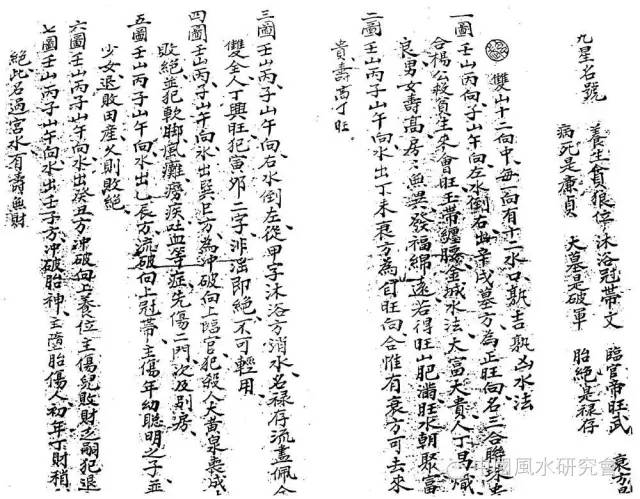 九星名號
養生貪狼位 沐浴冠帶文 臨官帝旺武 衰方
病死是廉貞 大墓是破軍 胎絕是祿存
雙山十二向中、每一向有十二水口孰吉孰凶水法
一圖壬山丙向子山午向左水倒右出辛戌墓方、為正旺向名三合聯珠貴
合楊公救貧生來會旺玉帶纏腰金城水法、大富大貴人丁昌熾
良男女壽高房々無異、發福綿遠若得旺山肥滿旺水朝聚富
貴壽高丁旺。
二圖壬山丙子山午向水出丁未衰方為自旺向合惟有衰方可去來
三圖壬山丙子山午向右水倒左從甲字沐浴方消水名祿存流盡佩金
雙全人丁興旺犯寅卯二字、非滛即絕不可輕用、
四圖壬山丙子山午向水出巽巳方為冲破向上臨官犯殺人大黃泉喪成
敗絕並犯軟脚瘋癱癆疾吐血等症先傷二門次及別房、
五圖壬山丙子山午向水出乙辰方流破向上冠帶主傷年幼聰明之子並
少女退敗田産久則敗絕
六圖壬山丙子山午向水出癸丑方冲破向上養位主傷兒敗財乏嗣犯退
七圖壬山丙子山午向水出壬子方冲破胎神、主墮胎傷人初年丁財稍
絕此名過宮水有壽無財
國風水研究會